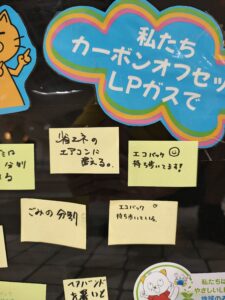 私たち
カーボンオフセッ
LPガスで
省エネの
エアコンに
変える。
エコバック
持ち歩いてます!
分別
る
ごみの分別
エコバック
持ち歩いている。
ヘアバンド
を置いて
私たちは
やさしいLP
地球の